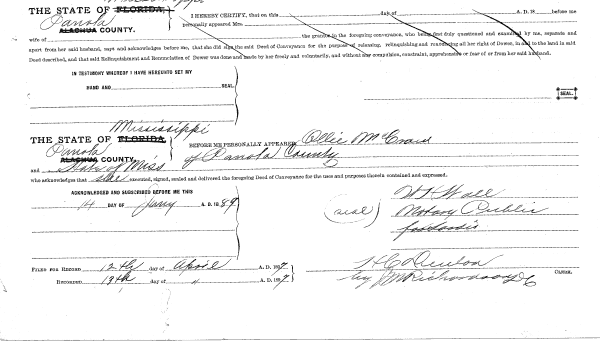 THE STATE OF FLORIDA,
Panola
ALACHUA COUNTY.
I HEREBY CERTIFY, that on this day of A. D. 18 before me
personally appeared Mrs.
wife of the grantor in the foregoing conveyance, who being first duly questioned and examined by me, separate and
apart from her said husband, says and acknowledges before me, that she did sign the said Deed of Conveyance for the purpose of releasing, relinquishing and renouncing all her right of Dower, in and to the land in said
Deed described, and that said Relinquishment and Renunciation of Dower was done and made by her freely and voluntarily, and without any compulsion, constraint, apprehension or fear of or from her said husband.
IN TESTIMONY WHEREOF I HAVE HEREUNTO SET MY
HAND AND SEAL
SEAL
Mississippi
THE STATE OF FLORIDA
Panola
ALACHUA COUNTY.
BEFORE ME PERSONALLY APPEARED Ollie McCraw
of Panola County
and State of Miss
who acknowledges that she executed, signed, sealed and delivered the foregoing Deed of Conveyance for the uses and purposes therein contained and expressed.
ACKNOWLEDGED AND SUBSCRIBED BEFORE ME THIS
14 DAY OF Jany A. D. 1889
(seal)
W H Wall
Notary Public
FILED FOR RECORD 12th day of April A. D. 1897
RECORDED 13th day of " A. D. 1897
H C Denton
CLERK.
by J M Richardson D C